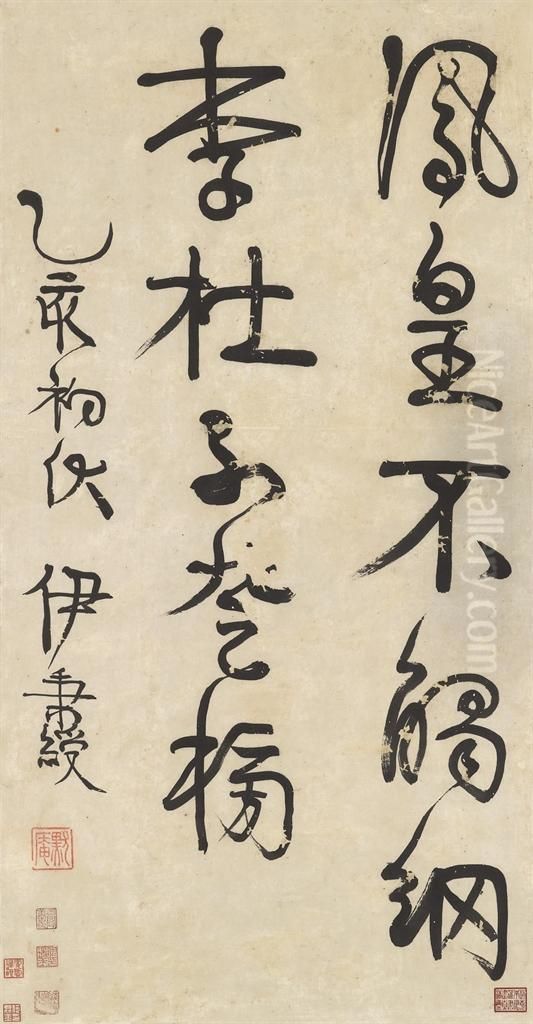 鳳皇不觸網
李杜不登榜
乙亥初伏 伊秉綬
默庵
NiceArtGallery.com